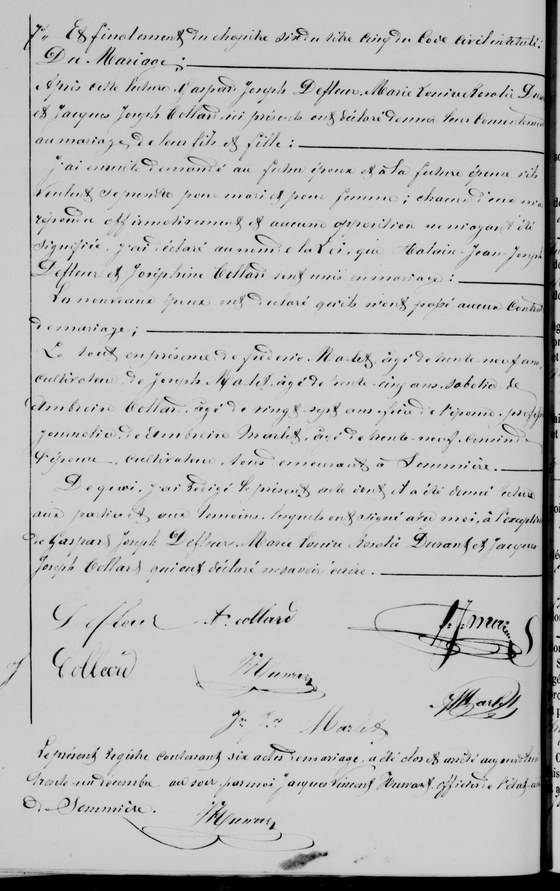 7° Et finalement du chapitre six du titre cinq du Code Civil intitulé:
Du Mariage;
Après cette lecture Gaspard Joseph Defleur, Marie Louise Rosalie
et Jacques Joseph Collard, ici présents ont déclaré donner leur consentement
au mariage de leur fils et fille:
J'ai ensuite demandé au futur époux et à la future épouse s'ils
veulent se prendre pour mari et pour femme; chacun d'eux
répondu affirmativement et aucune opposition ne m'ayant été
signifiée, j'ai déclaré au nom de la Loi, que Jean Joseph
Defleur et Joséphine Collard sont unis en mariage:
Les nouveaux époux ont déclaré qu'ils n'ont passé aucun Contrat
de mariage;
Le tout en présence de Frédéric Marlet, âgé de trente-neuf ans,
cultivateur, de Joseph Marlet, âgé de trente-cinq ans, sabotier, de
Ambroise Collard, âgé de vingt-sept ans, frère de l'épouse,
journalier, de Ambroise Marlet, âgé de trente-neuf,
l'épouse, cultivateur, tous demeurant à Sommière.
De quoi, j'ai rédigé le présent acte dont il a été donné lecture
aux parties et aux témoins, lesquels ont signé avec moi, à l'exception
de Gaspard Joseph Defleur, Marie Louise Rosalie Durant et Jacques
Joseph Collard qui ont déclaré ne savoir écrire.
Defleur A. collard
Collard
Marlet
J. J. Marlet
Le présent registre contenant six actes de mariage, a été clos et arrêté
trente-un décembre au soir, par moi Jacques Vincent officier de l'état
de Sommière.